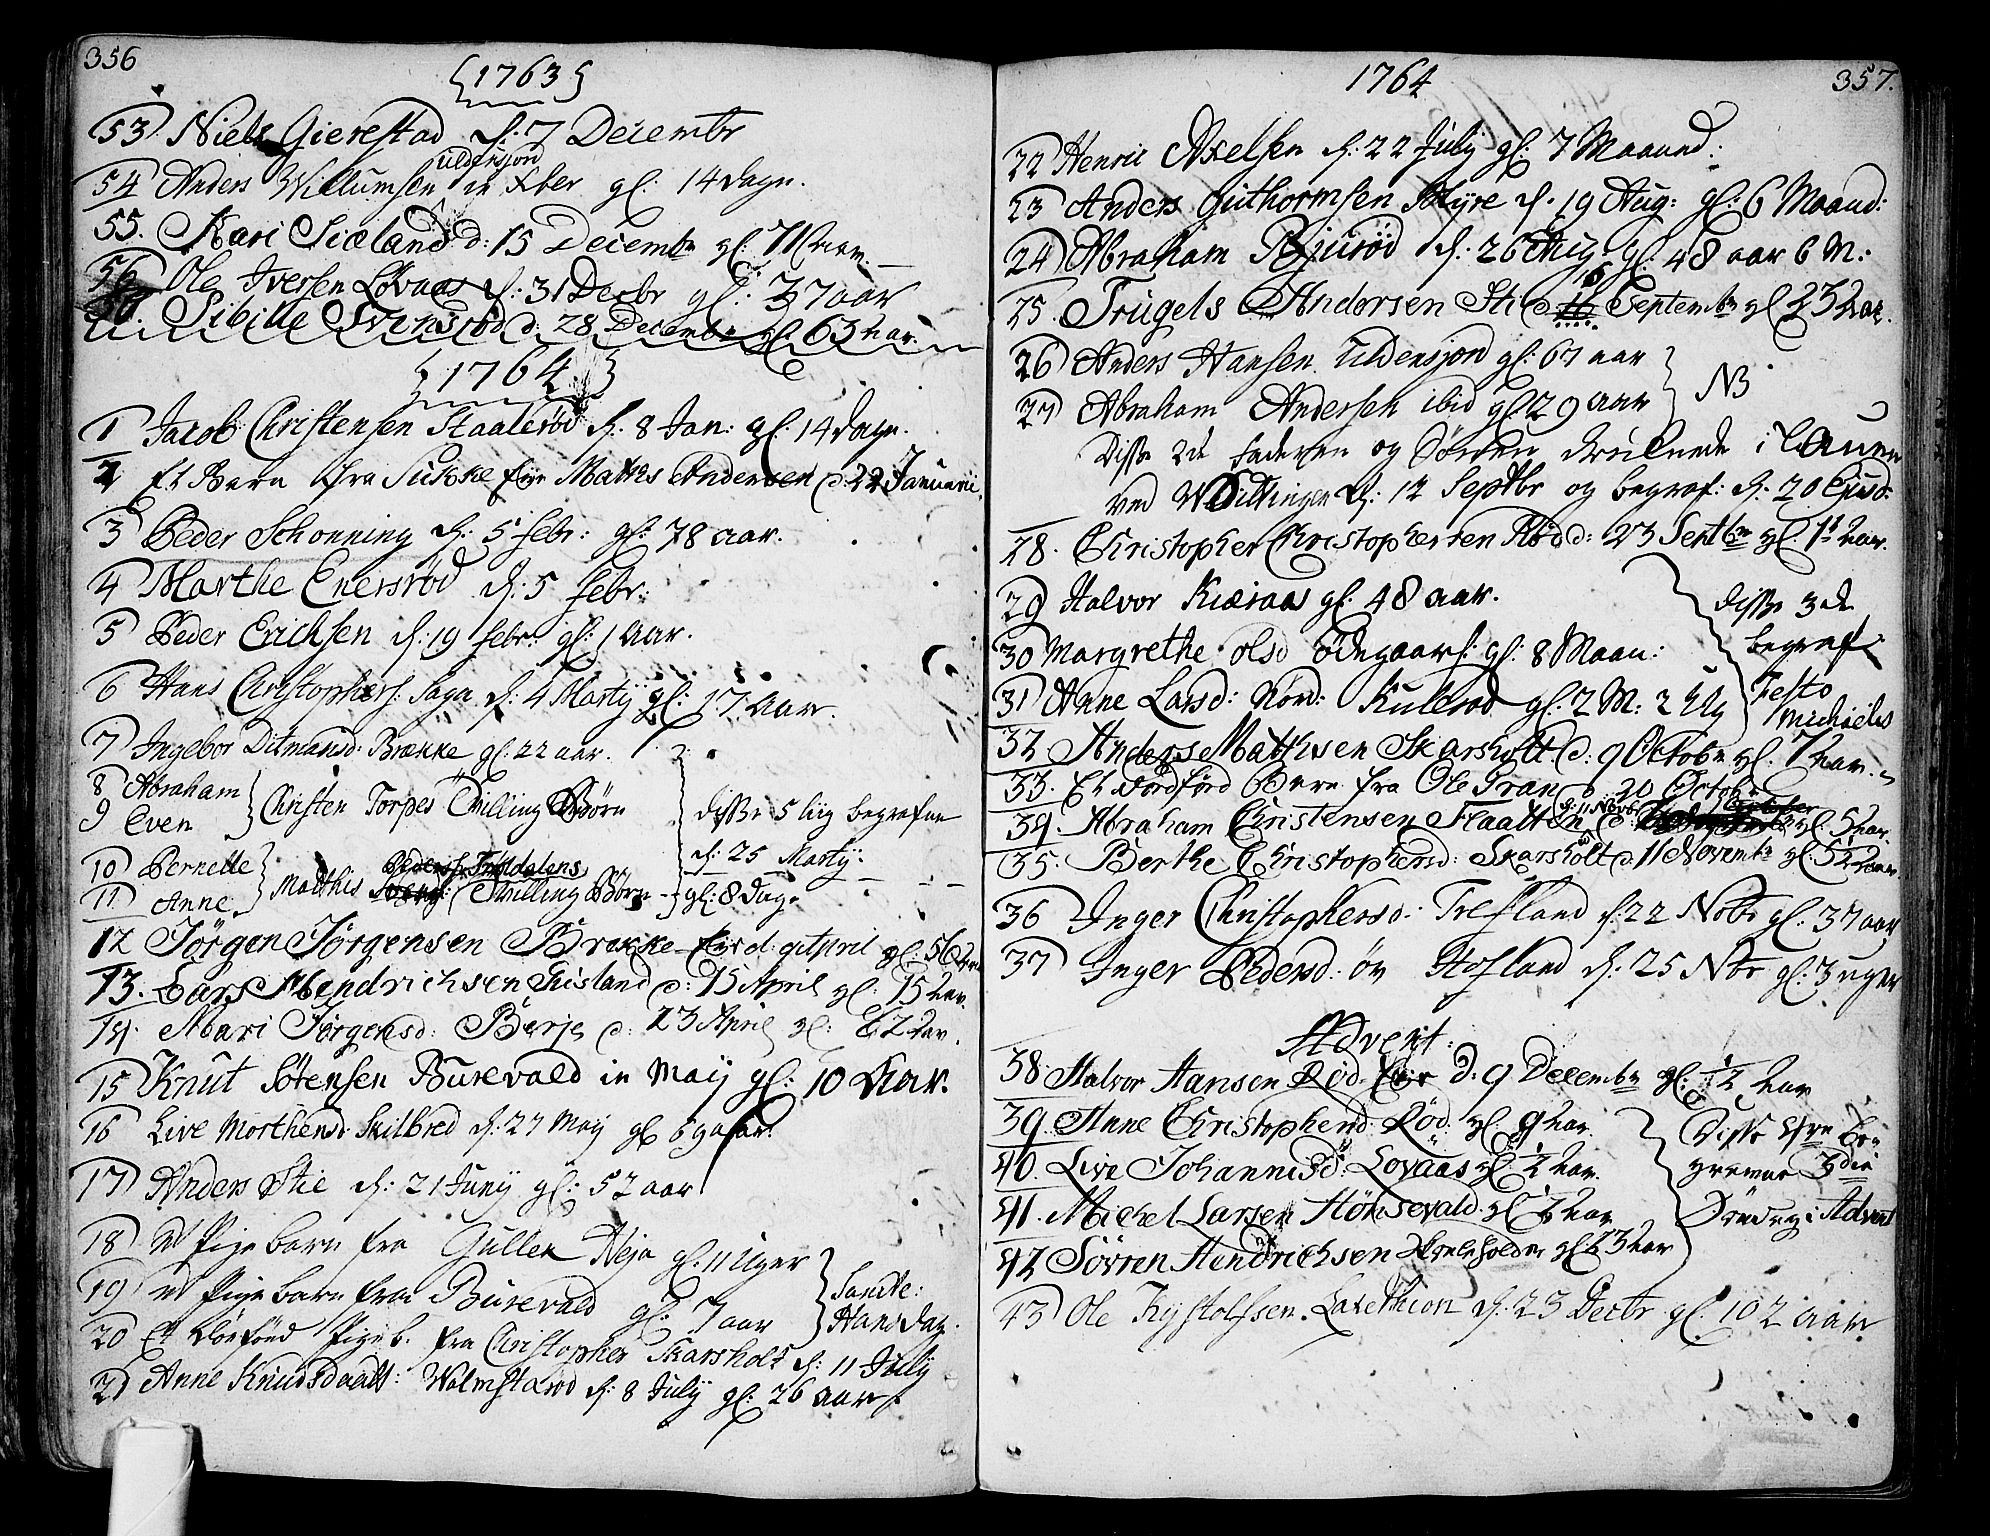 356
1763
53 Niels Gierestad d: 7 Decembr
54 Anders Willumsen Uldensjord in Xber gl: 14 dage.
55. Kari Siæland d: 15 Decembr gl: 71 Aar.
56 Ole Iversen Løvaas d: 31 Decbr gl: 37 aar
Sibille Svensrød d: 28 Decembr gl: 63 aar.
1764
1 Jacob Christensen Staalerød d. 8 Jan: gl: 14 dage.
2 Et Barn fra Mathis Andersen d: 22 Januarii.
3 Peder Schonning d: 5 febr: gl: 78 aar.
4 Marthe Enersrød d. 5 febr:
5 Peder Erichsen d: 19 febr: gl: 1 Aar.
6 Hans Christophers: Haga d: 4 Martij gl: 17 Aar.
7 Ingebor Ditmansd: Brække gl: 22 aar.
8 Abraham
9 Even
Christen Torpes Tvilling Børn
disse 5 liig begrafne
d: 25 Martij
10 Pernelle
11 Anne
Matthis Peders: Trældalens Tvilling Børn
gl: 8 Dag.
12 Jørgen Jørgensen Brække d: 9 April gl: 56 Aar
13. Lars Hendrichsen Husland d: 15 April gl: 15 Aar.
14. Mari Jørgensd: Berje d: 23 April gl: 2 aar.
15 Knut Sørensen Burevald in Maij gl: 10 Aar.
16 Live Morthensd: Skilbred d. 27 Maij gl 69 aar.
17 Anders Stie d: 21 Junij gl: 52 aar
18 et Pige barn fra Gullen Heja gl: 11 Uger
19 et Pige barn fra Burevald gl: 7 aar
Sancte:
Hans Dag.
20 Et Dødfød Pige b. fra Christopher Skarsholt d: 11 Julij
21 Anne Knudsdaatt: Wolmstarød d: 8 Julij gl: 26 aar
1764
357.
22 Henric Axelsen d: 22 July gl: 7 Maaned:
23 Anders Guthormsen Myre d. 19 Aug: gl: 6 Maaned:
24 Abraham Bjurød d: 26 Aug. gl: 48 aar 6 M:
25. Trugels Andersen Sti d 16 Septembr gl 23 Aar.
26 Anders Hansen Uldensjord gl: 67 aar
27 Abraham Andersen ibid gl: 29 aar
NB
Disse 2de faderen og Sønnen druknede i Lauen
ved Wittingen d: 12 Septbr og begraf: d: 20 Ejusd:
28. Christopher Christophersen Rød d: 23 Septbr gl: 1½ Aar.
29 Halvor Kiæraas gl: 48 aar.
30 Margrethe Olsd Ødegaard: gl: 8 Maan:
31 Anne Larsd: Nord: Kullerød gl: 2 M: 2 Ug
disse 3de
begraf:
Festo
Michaelis
32 Anders Mathisen Skarsholt d: 9 Octobr gl. 7 aar.
33. Et Dødfød Barn fra Ole Gran d. 20 Octobr
34. Abraham Christensen Flaatten d: 11 Novb: gl: 5 Aar.
35. Berthe Christophersd: Skarsholt d: 11 Novembr gl: 5½ Aar.
36 Inger Christophersd: Trefland d: 22 Nobr gl: 37 aar
37 Inger Pedersd: øv Hofland d: 25 Nobr gl: 3 uger
Advent:
38. Halvor Hansen Rød d: 9 Decembr gl: ½ Aar
39. Anne Christophersd: Rød. gl. 9 aar.
40. Live Johannisd: Lovaas gl: ½ Aar.
41. Michel Larsen Hønsevald. gl ½ Aar
42 Sovren Hendrichsen gl: 23 Aar
Disse ere be-
gravne 3die
Søndag i Advent
43 Ole Kystolfsen. Laxethion d. 23 Decbr gl: 102 aar